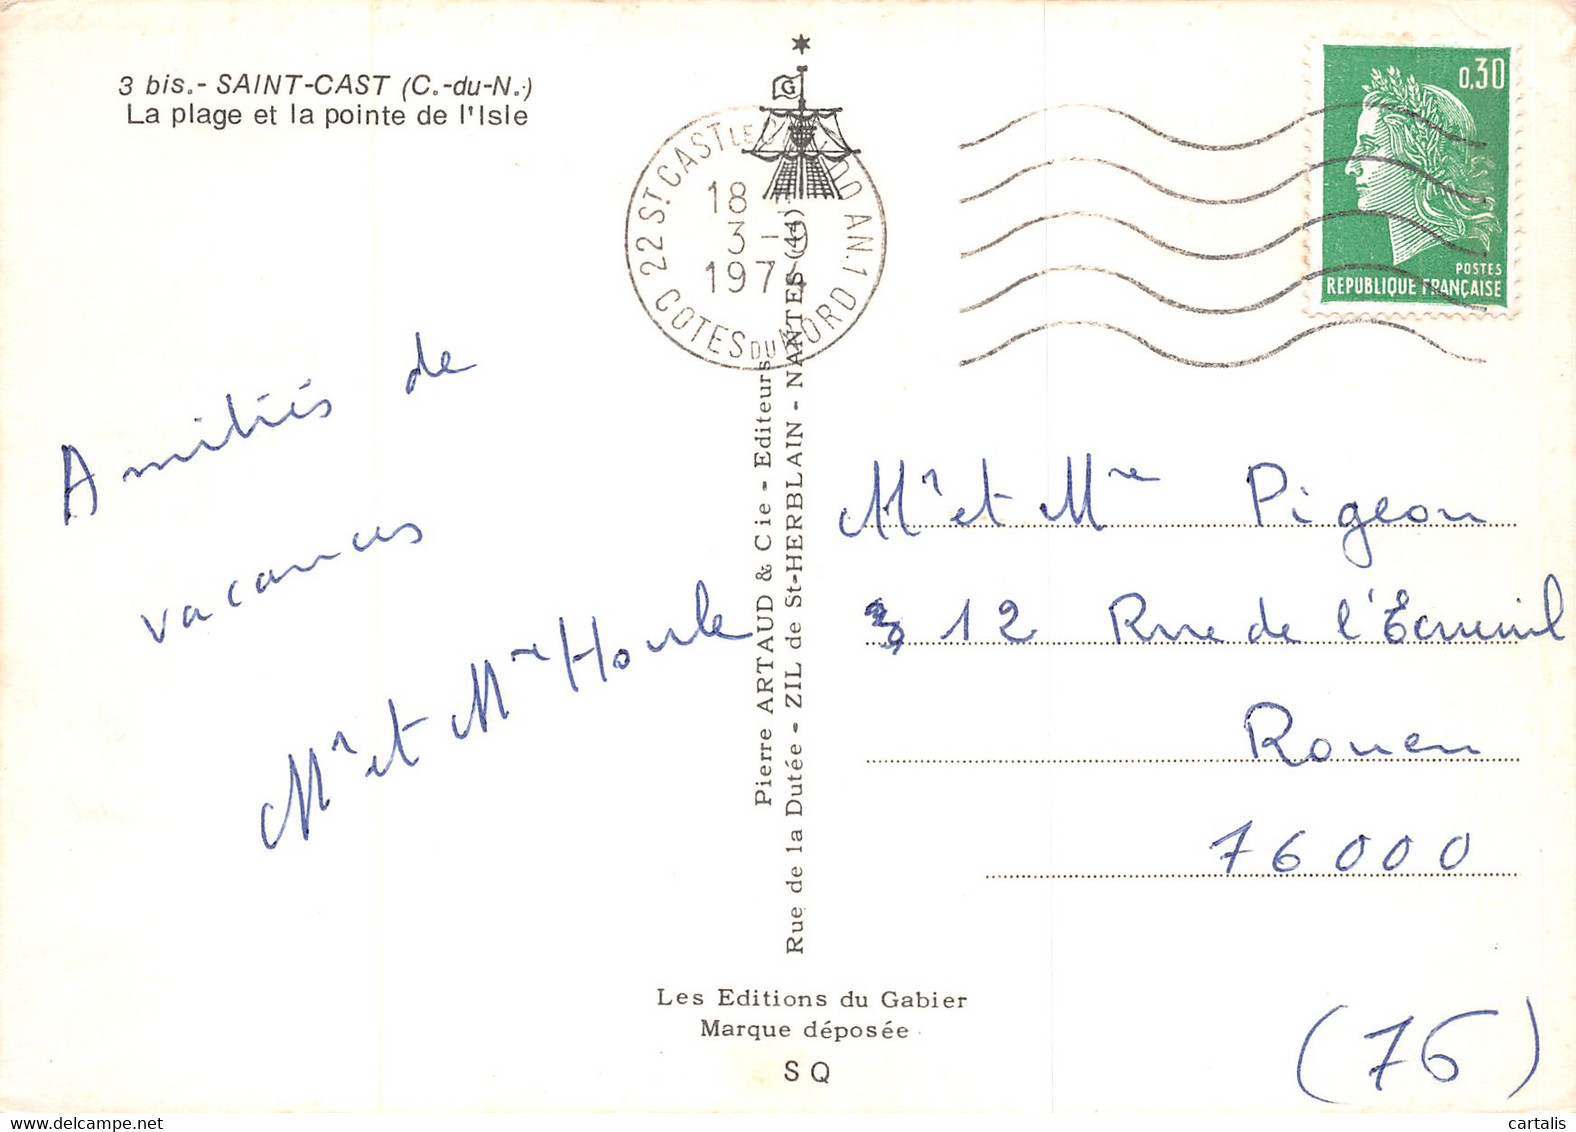 3 bis.- SAINT-CAST (C.-du-N.)
La plage et la pointe de l'Isle
Amitiés de
vacances
Mr et Mme Houle
G
22 ST. CAST LE
18
3-9
197
COTES DU NORD
Pierre ARTAUD & Cie - Editeurs
Rue de la Dutée - ZIL de St-HERBLAIN - NANTES (44)
Les Editions du Gabier
Marque déposée
S Q
0,30
POSTES
REPUBLIQUE FRANÇAISE
Mr et Mme Pigeon
12 Rue de l'Ecureuil
Rouen
76000
(76)
cartalis